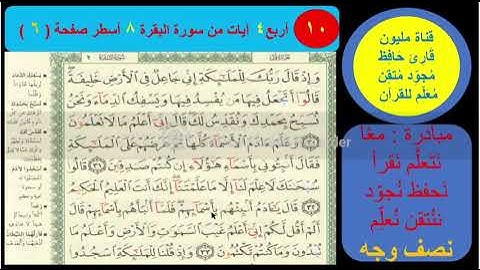 ١٠
أربع ٤ آيات من سورة البقرة ٨ أسطر صفحة ( ٦ )
قناة مليون
قارئ حافظ
مُجوّد مُتقن
مُعلّم للقرآن
مبادرة : معًا
نَتعلّم نَقرأ
نَحفظ نُجوّد
نَتْقن نُعلّم
نصف وجه
وَإِذْ قَالَ رَبُّكَ لِلْمَلَٰٓئِكَةِ إِنِّى جَاعِلٌ فِى ٱلْأَرْضِ خَلِيفَةً
قَالُوٓا۟ أَتَجْعَلُ فِيهَا مَن يُفْسِدُ فِيهَا وَيَسْفِكُ ٱلدِّمَآءَ وَنَحْنُ
نُسَبِّحُ بِحَمْدِكَ وَنُقَدِّسُ لَكَ قَالَ إِنِّىٓ أَعْلَمُ مَا لَا تَعْلَمُونَ
٣٠ وَعَلَّمَ ءَادَمَ ٱلْأَسْمَآءَ كُلَّهَا ثُمَّ عَرَضَهُمْ عَلَى ٱلْمَلَٰٓئِكَةِ
فَقَالَ أَنۢبِـُٔونِى بِأَسْمَآءِ هَٰٓؤُلَآءِ إِن كُنتُمْ صَٰدِقِينَ ٣١ قَالُوا۟
سُبْحَٰنَكَ لَا عِلْمَ لَنَآ إِلَّا مَا عَلَّمْتَنَآ إِنَّكَ أَنتَ ٱلْعَلِيمُ ٱلْحَكِيمُ
٣٢ قَالَ يَٰٓـَٔادَمُ أَنۢبِئْهُم بِأَسْمَآئِهِمْ فَلَمَّآ أَنۢبَأَهُم بِأَسْمَآئِهِمْ قَالَ
أَلَمْ أَقُل لَّكُمْ إِنِّىٓ أَعْلَمُ غَيْبَ ٱلسَّمَٰوَٰتِ وَٱلْأَرْضِ وَأَعْلَمُ مَا
تُبْدُونَ وَمَا كُنتُمْ تَكْتُمُونَ ٣٣ وَإِذْ قُلْنَا لِلْمَلَٰٓئِكَةِ ٱسْجُدُوا۟